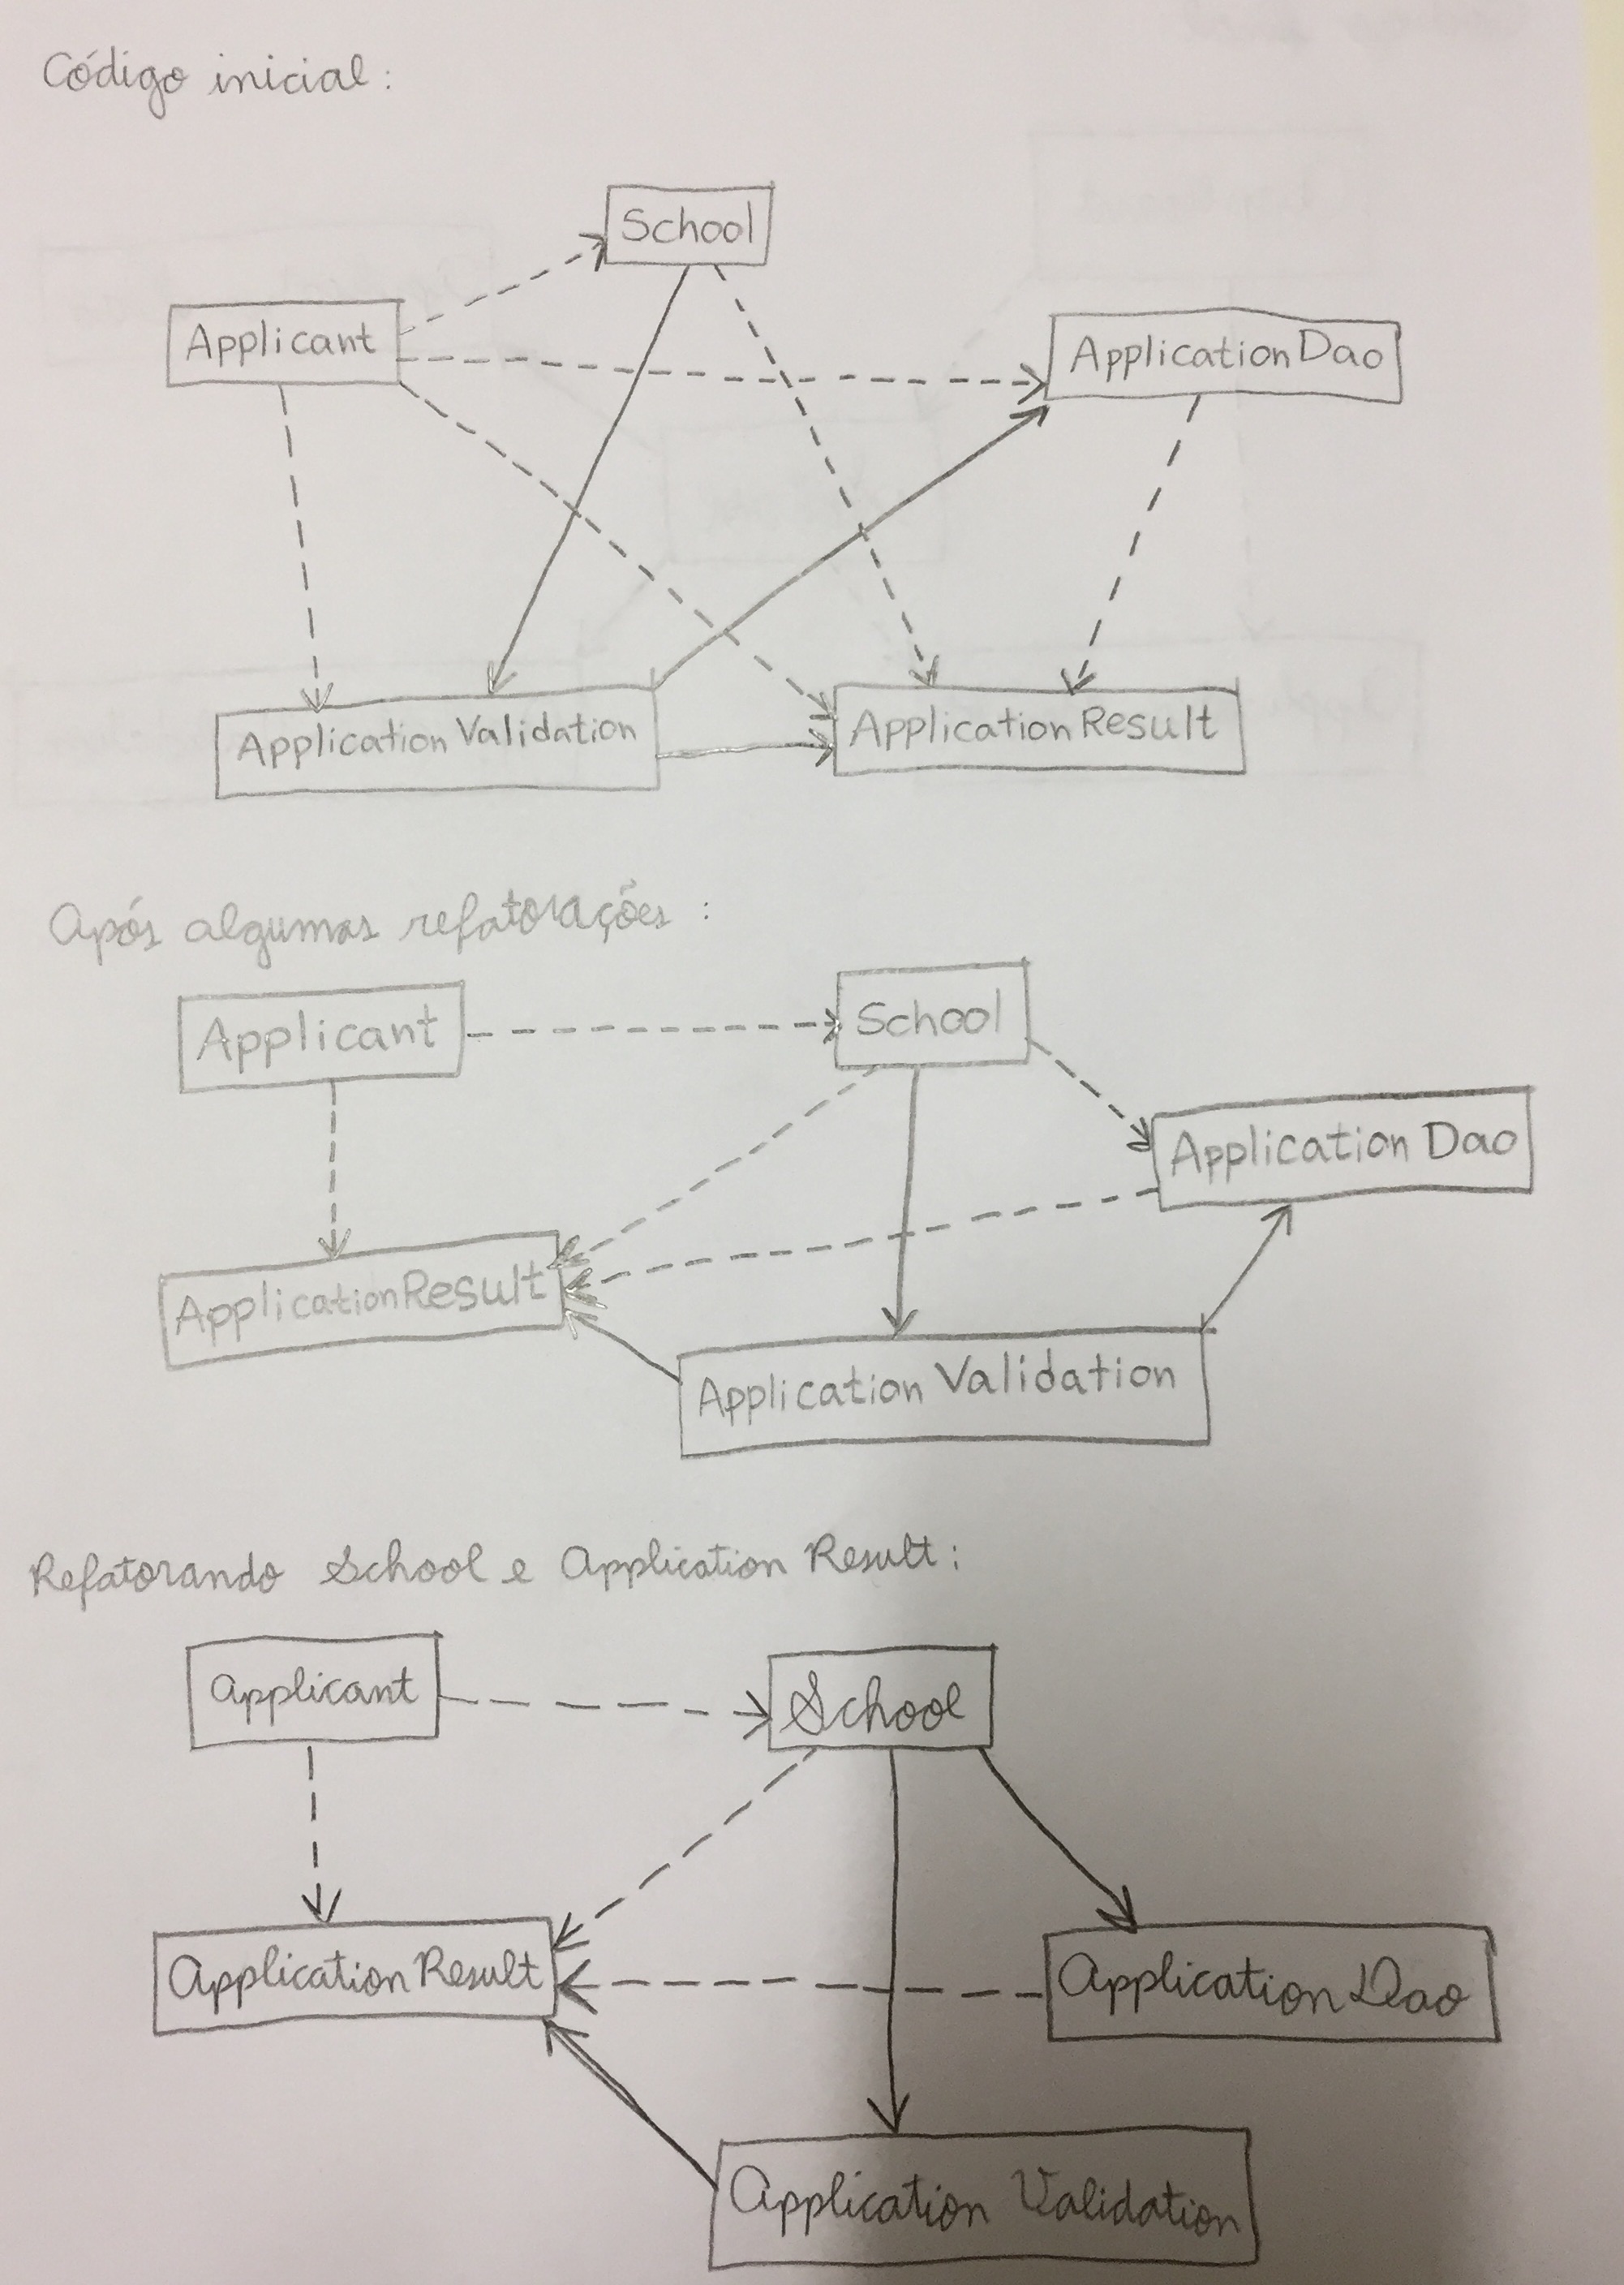 Código inicial:
School
Applicant
ApplicationDao
ApplicationValidation
ApplicationResult
Após algumas refatorações:
Applicant
School
Application Dao
ApplicationResult
Application Validation
Refatorando School e Application Result:
Applicant
School
Application Result
Application Dao
Application Validation